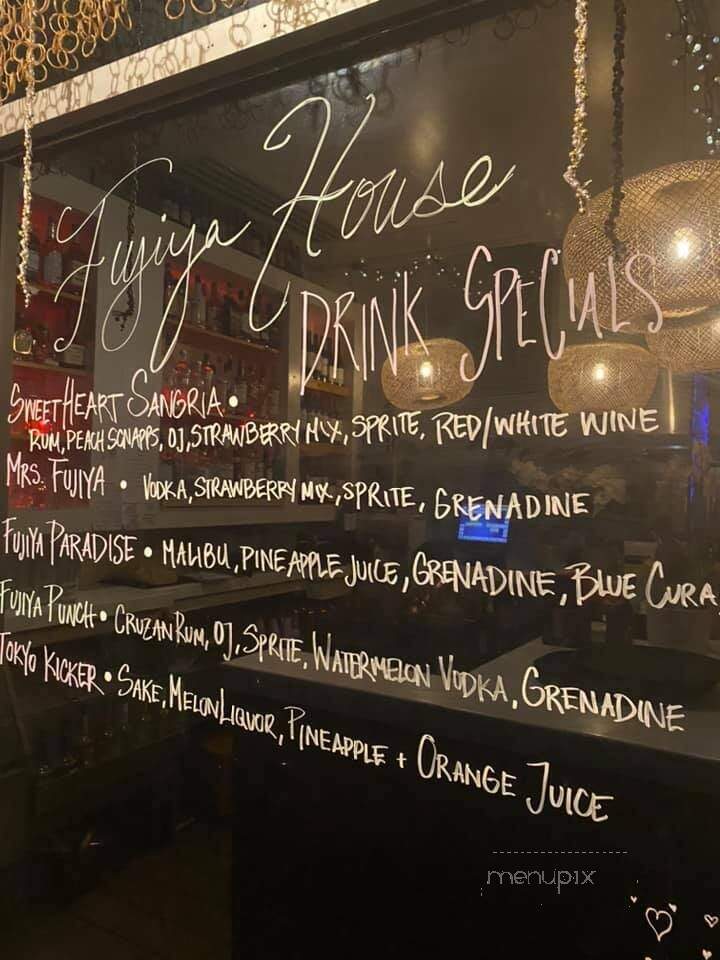 Fujiya House
DRINK SPECIALS
SWEETHEART SANGRIA •
RUM, PEACH SCNAPPS, OJ, STRAWBERRY MIX, SPRITE, RED/WHITE WINE
MRS. FUJIYA • VODKA, STRAWBERRY MIX, SPRITE, GRENADINE
FUJIYA PARADISE • MALIBU, PINEAPPLE JUICE, GRENADINE, BLUE CURA
FUJIYA PUNCH • CRUZAN RUM, OJ, SPRITE, WATERMELON VODKA, GRENADINE
TOKYO KICKER • SAKE, MELON LIQUOR, PINEAPPLE + ORANGE JUICE
menupix